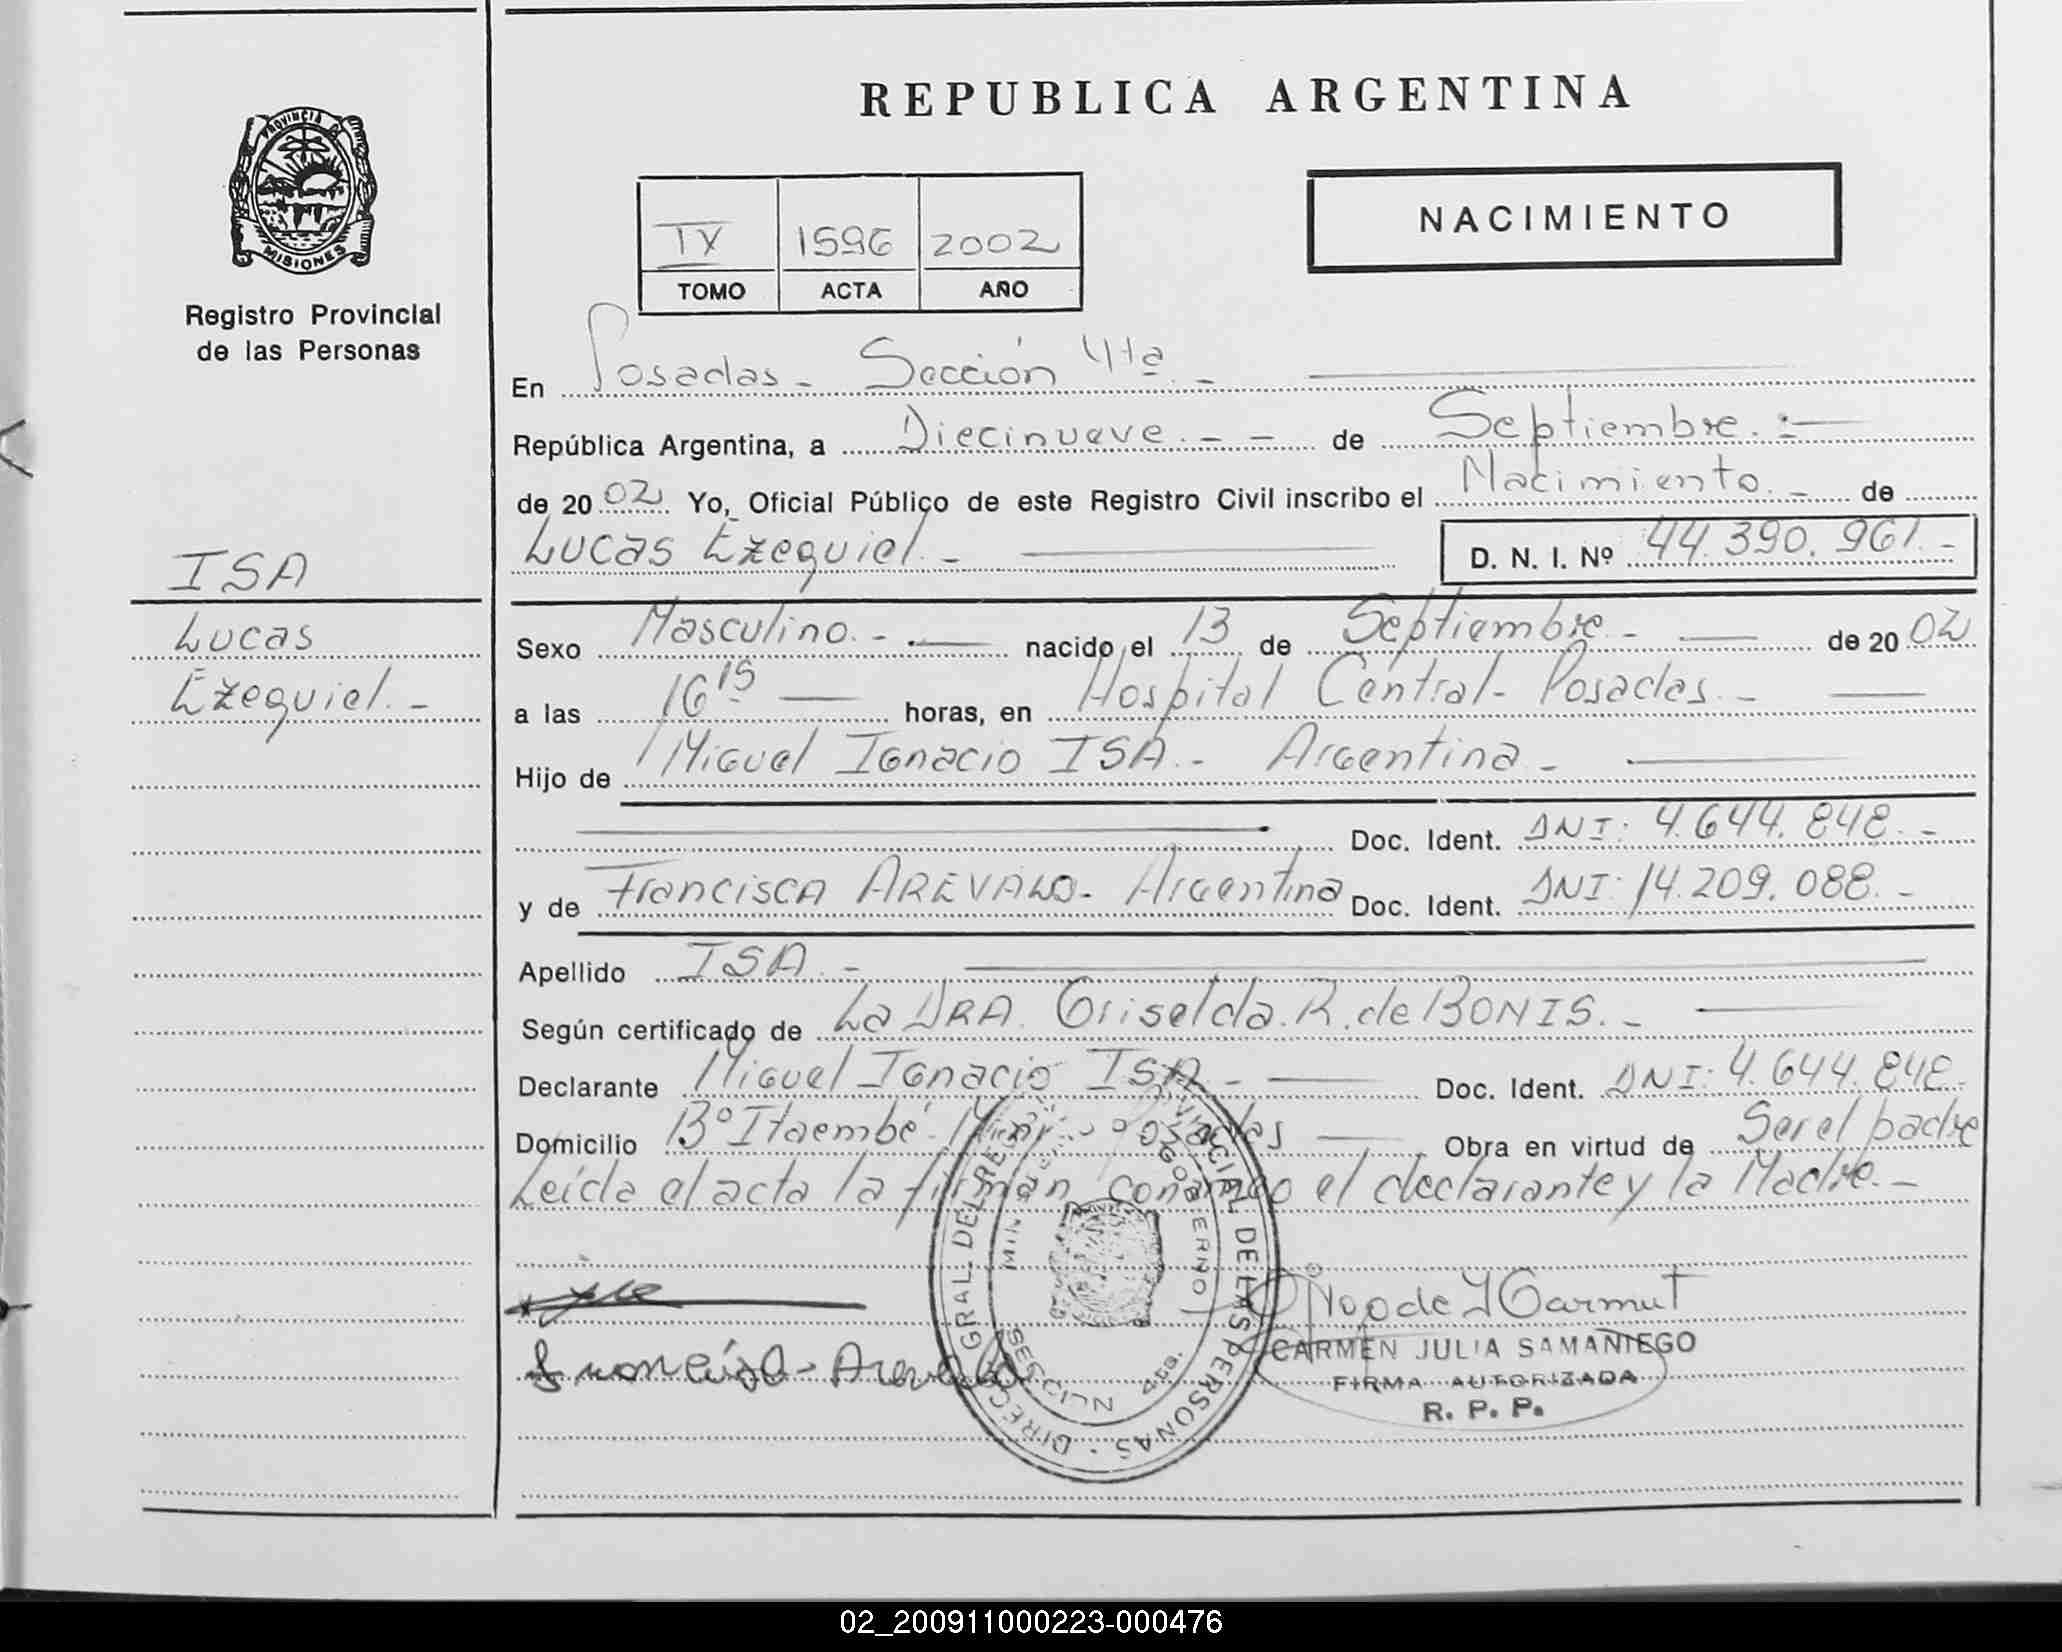 REPUBLICA ARGENTINA
PROVINCIA DE MISIONES
Registro Provincial
de las Personas
NACIMIENTO
IX 1596 2002
TOMO ACTA AÑO
En Posadas - Sección 4ta. -
República Argentina, a Diecinueve. - - de Septiembre. -
de 2002. Yo, Oficial Público de este Registro Civil inscribo el Nacimiento. - de
Lucas Ezequiel. - D. N. I. Nº 44.390.961. -
ISA
Lucas
Ezequiel. -
Sexo Masculino. - nacido el 13 de Septiembre - de 2002
a las 16 15 horas, en Hospital Central - Posadas. -
Hijo de Miguel Ignacio ISA. - Argentina -
Doc. Ident. DNI: 4.644.848. -
y de Francisca AREVALO - Argentina Doc. Ident. DNI: 14.209.088. -
Apellido ISA. -
Según certificado de La DRA. Griselda. R. de BONIS. -
Declarante Miguel Ignacio ISA - Doc. Ident. DNI: 4.644.848.
Domicilio Bº Itaembé Miní - Posadas Obra en virtud de Ser el padre
Leída el acta la firman conmigo el declarante y la Madre. -
Francisca - Arevalo
DIRECC. GRAL. DEL REG. PROVINCIAL DE LAS PERSONAS
CARMEN JULIA SAMANIEGO
FIRMA AUTORIZADA
R. P. P.
02_200911000223-000476